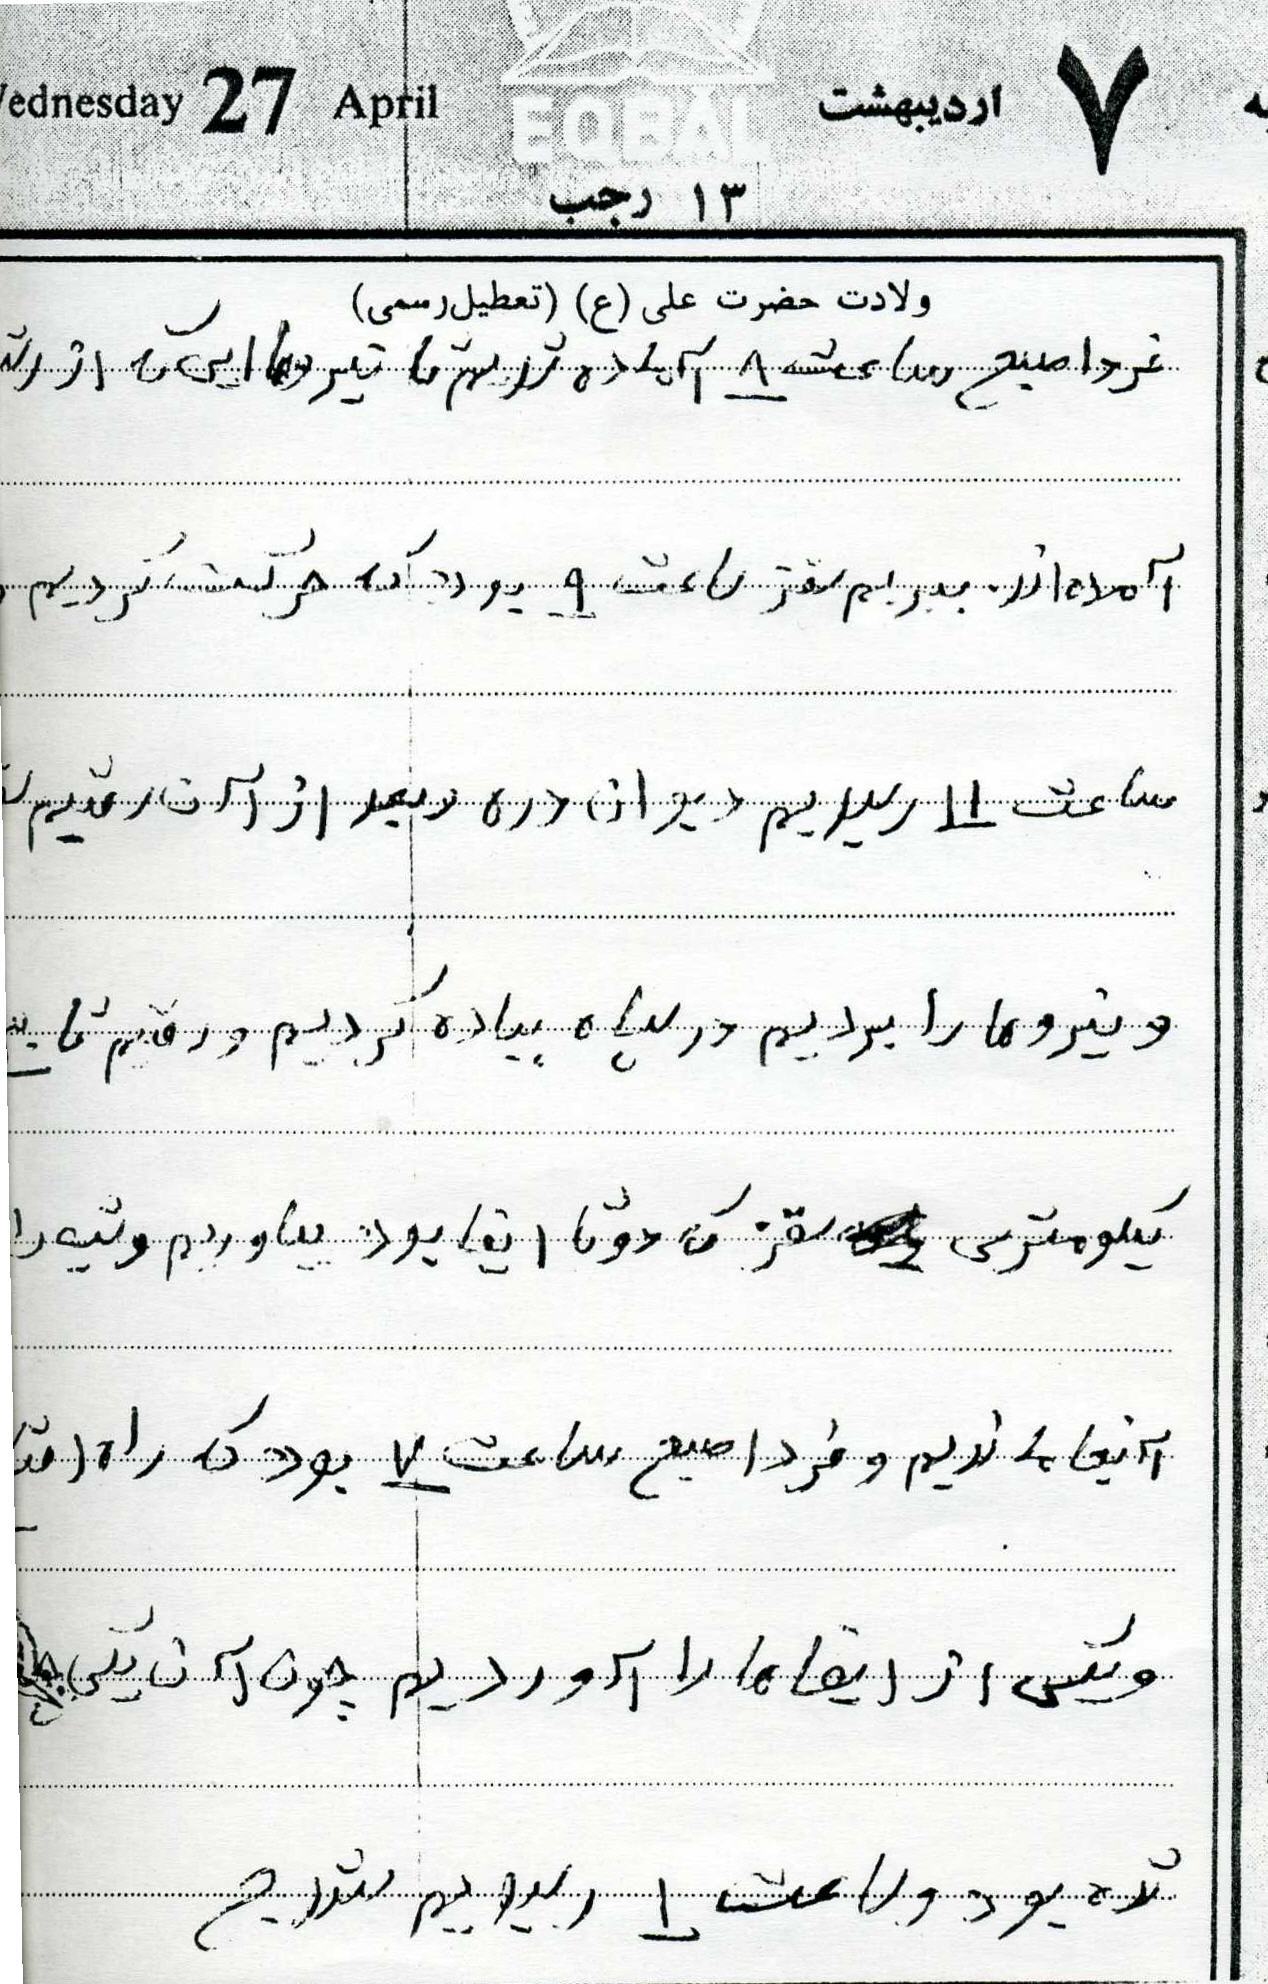 Wednesday 27 April
EQBAL
۷ اردیبهشت
۱۳ رجب
ولادت حضرت علی (ع) (تعطیل رسمی)
فردا صبح ساعت ۸ آماده شدیم تا نیروهایی که از
آمده‌اند ببریم سقز ساعت ۹ بود که حرکت کردیم
ساعت ۱۱ رسیدیم دیواندره و بعد از آن رفتیم
و نیروها را بردیم در سپاه پیاده کردیم و رفتیم تا
کیلومتری سقز که دو تا ایفا بود بیاوریم و شب را
آنجا ماندیم و فردا صبح ساعت ۷ بود که راه
و یکی از ایفاها را آوردیم چون آن یکی
شده بود و ساعت ۱ رسیدیم سنندج